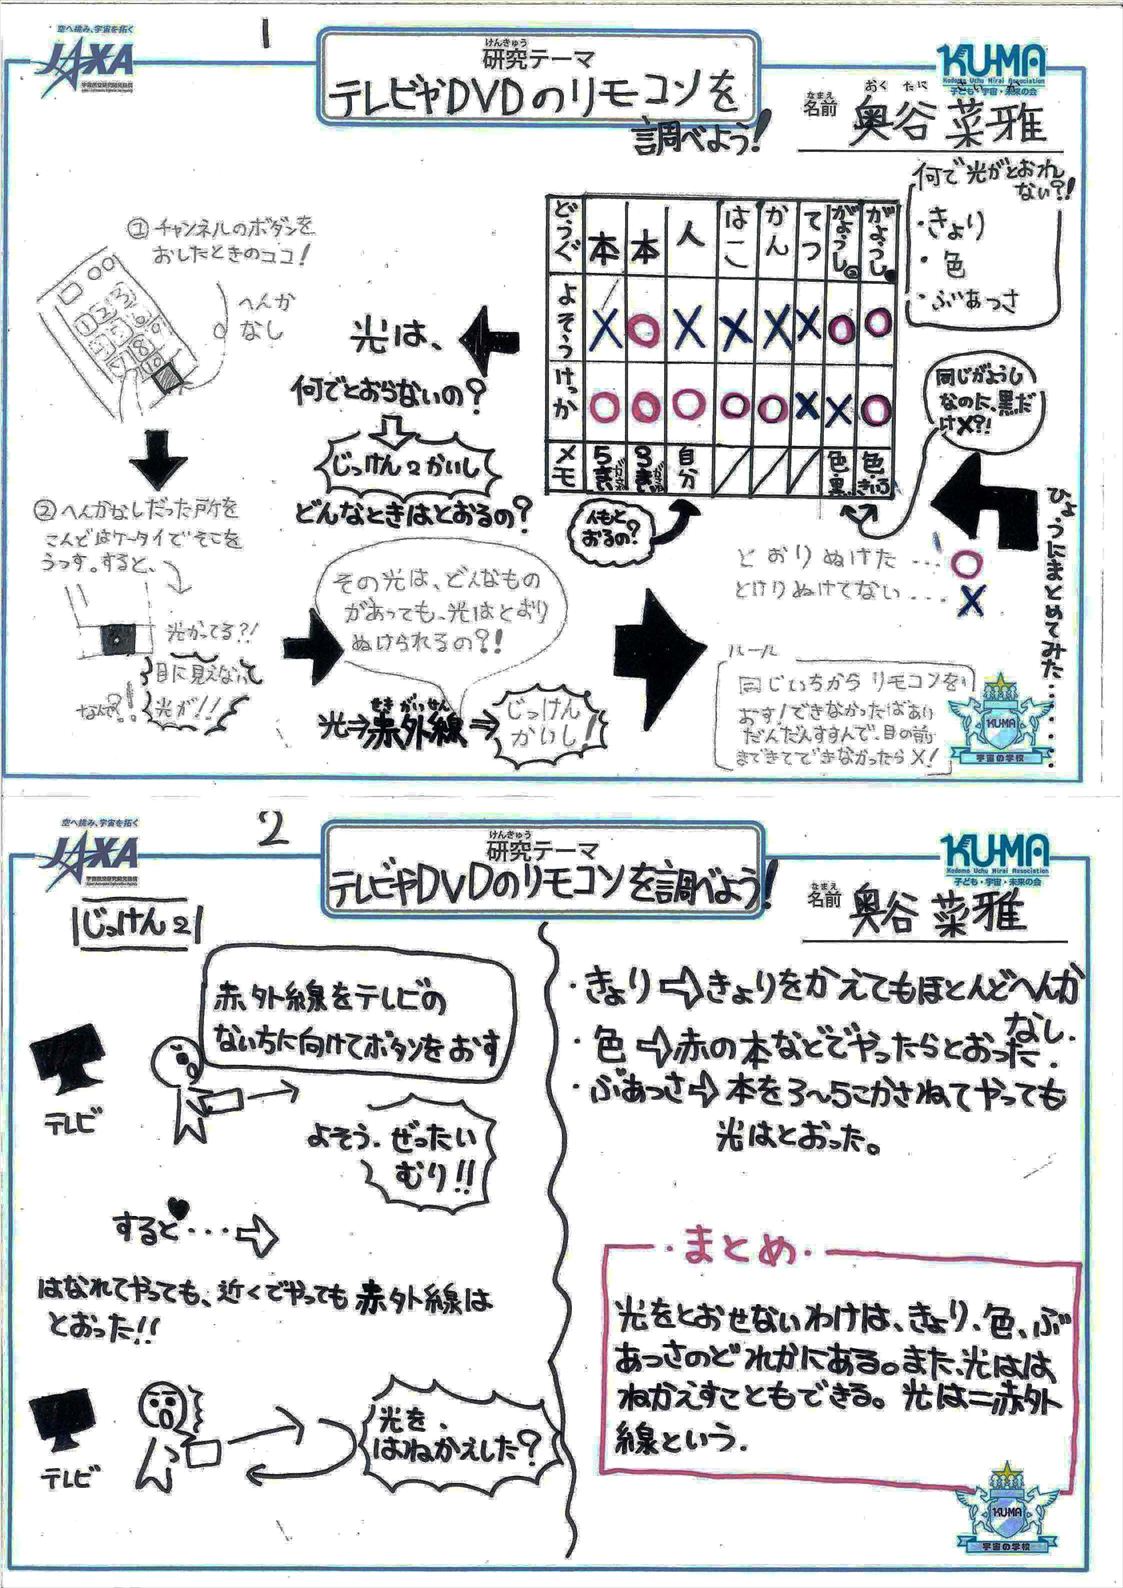 空へ挑み、宇宙を拓く
JAXA
1
けんきゅう
研究テーマ
テレビやDVDのリモコンを
調べよう!
KU-MA
Kodomo Uchu Mirai Association
子ども・宇宙・未来の会
なまえ
名前
おくたに さいか
奥谷 菜雅
①チャンネルのボタンを
おしたときのココ!
へんか
なし
②へんかなしだった所を
こんどはケータイでそこを
うつす。すると、
光かってる?!
目に見えない
光が!!
なんで?!
光は、
何でとおらないの?
じっけん2かいし
どんなときはとおるの?
その光は、どんなもの
があっても、光はとおり
ぬけられるの?!
せきがいせん
光⇒赤外線⇒
じっけん
かいし!
どうぐ 本 本 人 はこ かん てつ がようし がようし
よそう X ○ X X X X ○ ○
けっか ○ ○ ○ ○ ○ X X ○
メモ 5さつ 3さつ 自分 色・黒 色・きいろ
人もと
おるの?
何で光がとおれ
ない?!
・きょり
・色
・ぶあっさ
同じがようし
なのに、黒だ
けX?!
ひょうにまとめてみた……
とおりぬけた… ○
とけりぬけてない… X
ルール
同じいちからリモコンを
おす!できなかったばあい
だんだんすすんで、目の前
まできてできなかったらX!
KU-MA
宇宙の学校
空へ挑み、宇宙を拓く
JAXA
2
けんきゅう
研究テーマ
テレビやDVDのリモコンを調べよう!
KU-MA
Kodomo Uchu Mirai Association
子ども・宇宙・未来の会
なまえ
名前
奥谷 菜雅
じっけん2
赤外線をテレビの
ないちに向けてボタンをおす
テレビ
よそう.ぜったい
むり!!
すると・・・⇨
はなれてやっても、近くでやっても赤外線は
とおった!!
テレビ
光を、
はねかえした?
・きょり⇨きょりをかえてもほとんどへんか
なし.
・色⇨赤の本などでやったらとおった.
・ぶあっさ⇨本を3〜5こかさねてやっても
光はとおった。
・まとめ・
光をとおせないわけは、きょり、色、ぶ
あっさのどれかにある。また、光はは
ねかえすこともできる。光は=赤外
線という.
KU-MA
宇宙の学校